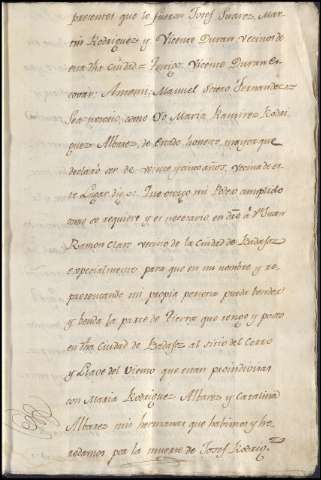 presentes que lo fueron Josef Suarez, Mar-
tin Rodriguez y Vicente Duran vecinos de
esta dha Ciudad = Testigo: Vicente Duran
Antemi: Manuel Sotero Fernandez =
Sea notorio, como Yo Maria Ramirez Rodri-
guez Albarez, de estado honesto, mayor que
declaró ser de veinte y cinco años, vecina de es-
te Lugar digo: Que otorgo mi Poder cumplido
como se requiere y es necesario en dro á Dn Juan
Ramon Claro vecino de la Ciudad de Badajoz
especialmente para que en mi nombre y re-
presentando mi propia persona pueda bender
y benda la parte de Tierra que tengo y poseo
en dha Ciudad de Badajoz al sitio del Cerro
y Llave del Viento que estan proindivisas
con Maria Rodriguez Albarez y Catalina
Albarez mis hermanas que habimos y he-
redamos por la muerte de Josef Rodrig.z